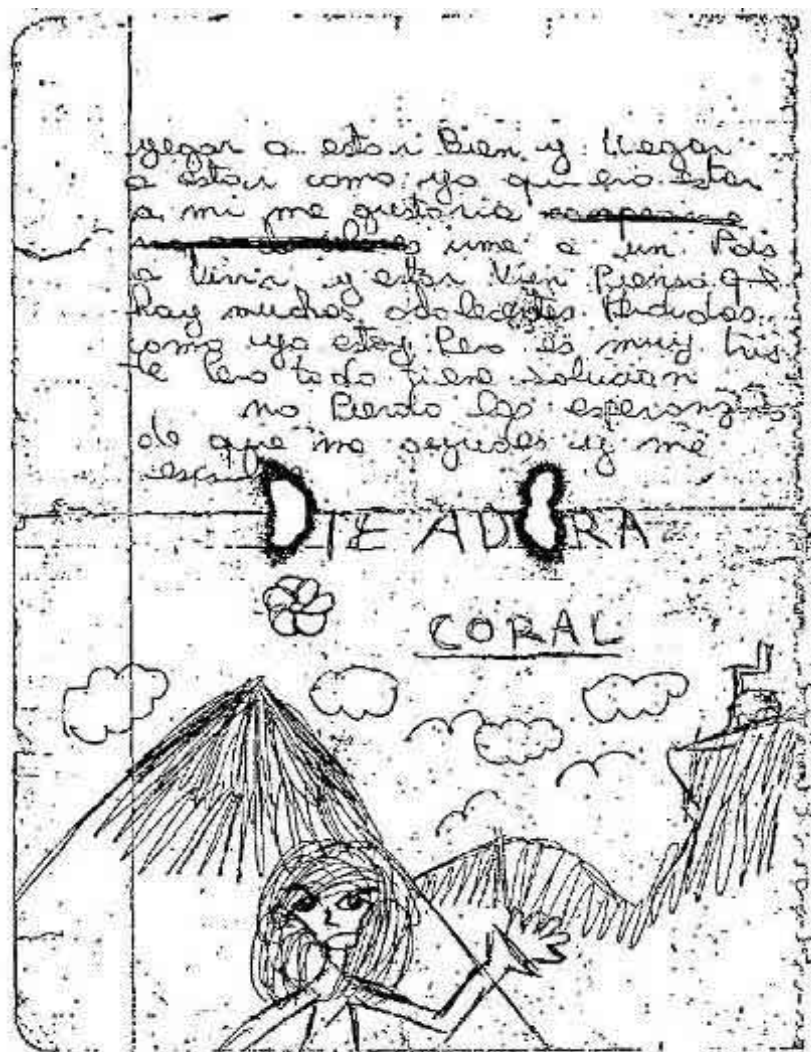 yegar a estar Bien y llegar
a estar como yo quiero estar
a mi me gustaria
irme a un Pais
a Vivir y estar Vien Pienso q
hay muchos adolecentes Perdidos
como yo estoy Pero es muy tris
te Pero todo tiene solucion
no Pierdo las esperanzas
de que me ayudes y me
TE ADORA
CORAL